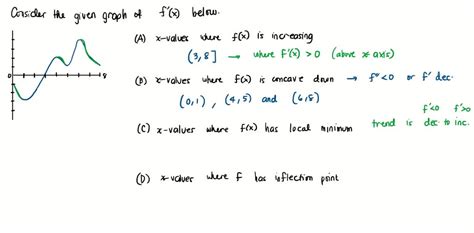 Consider the given graph of f'(x) below.
(A) x-values where f(x) is increasing
(3, 8] → where f'(x) > 0 (above x-axis)
(B) x-values where f(x) is concave down → f'' < 0 or f' dec.
(0,1), (4,5) and (6,8)
f'<0 f'>0
(C) x-values where f(x) has local minimum trend is dec. to inc.
(D) x-values where f has inflection point
0
8